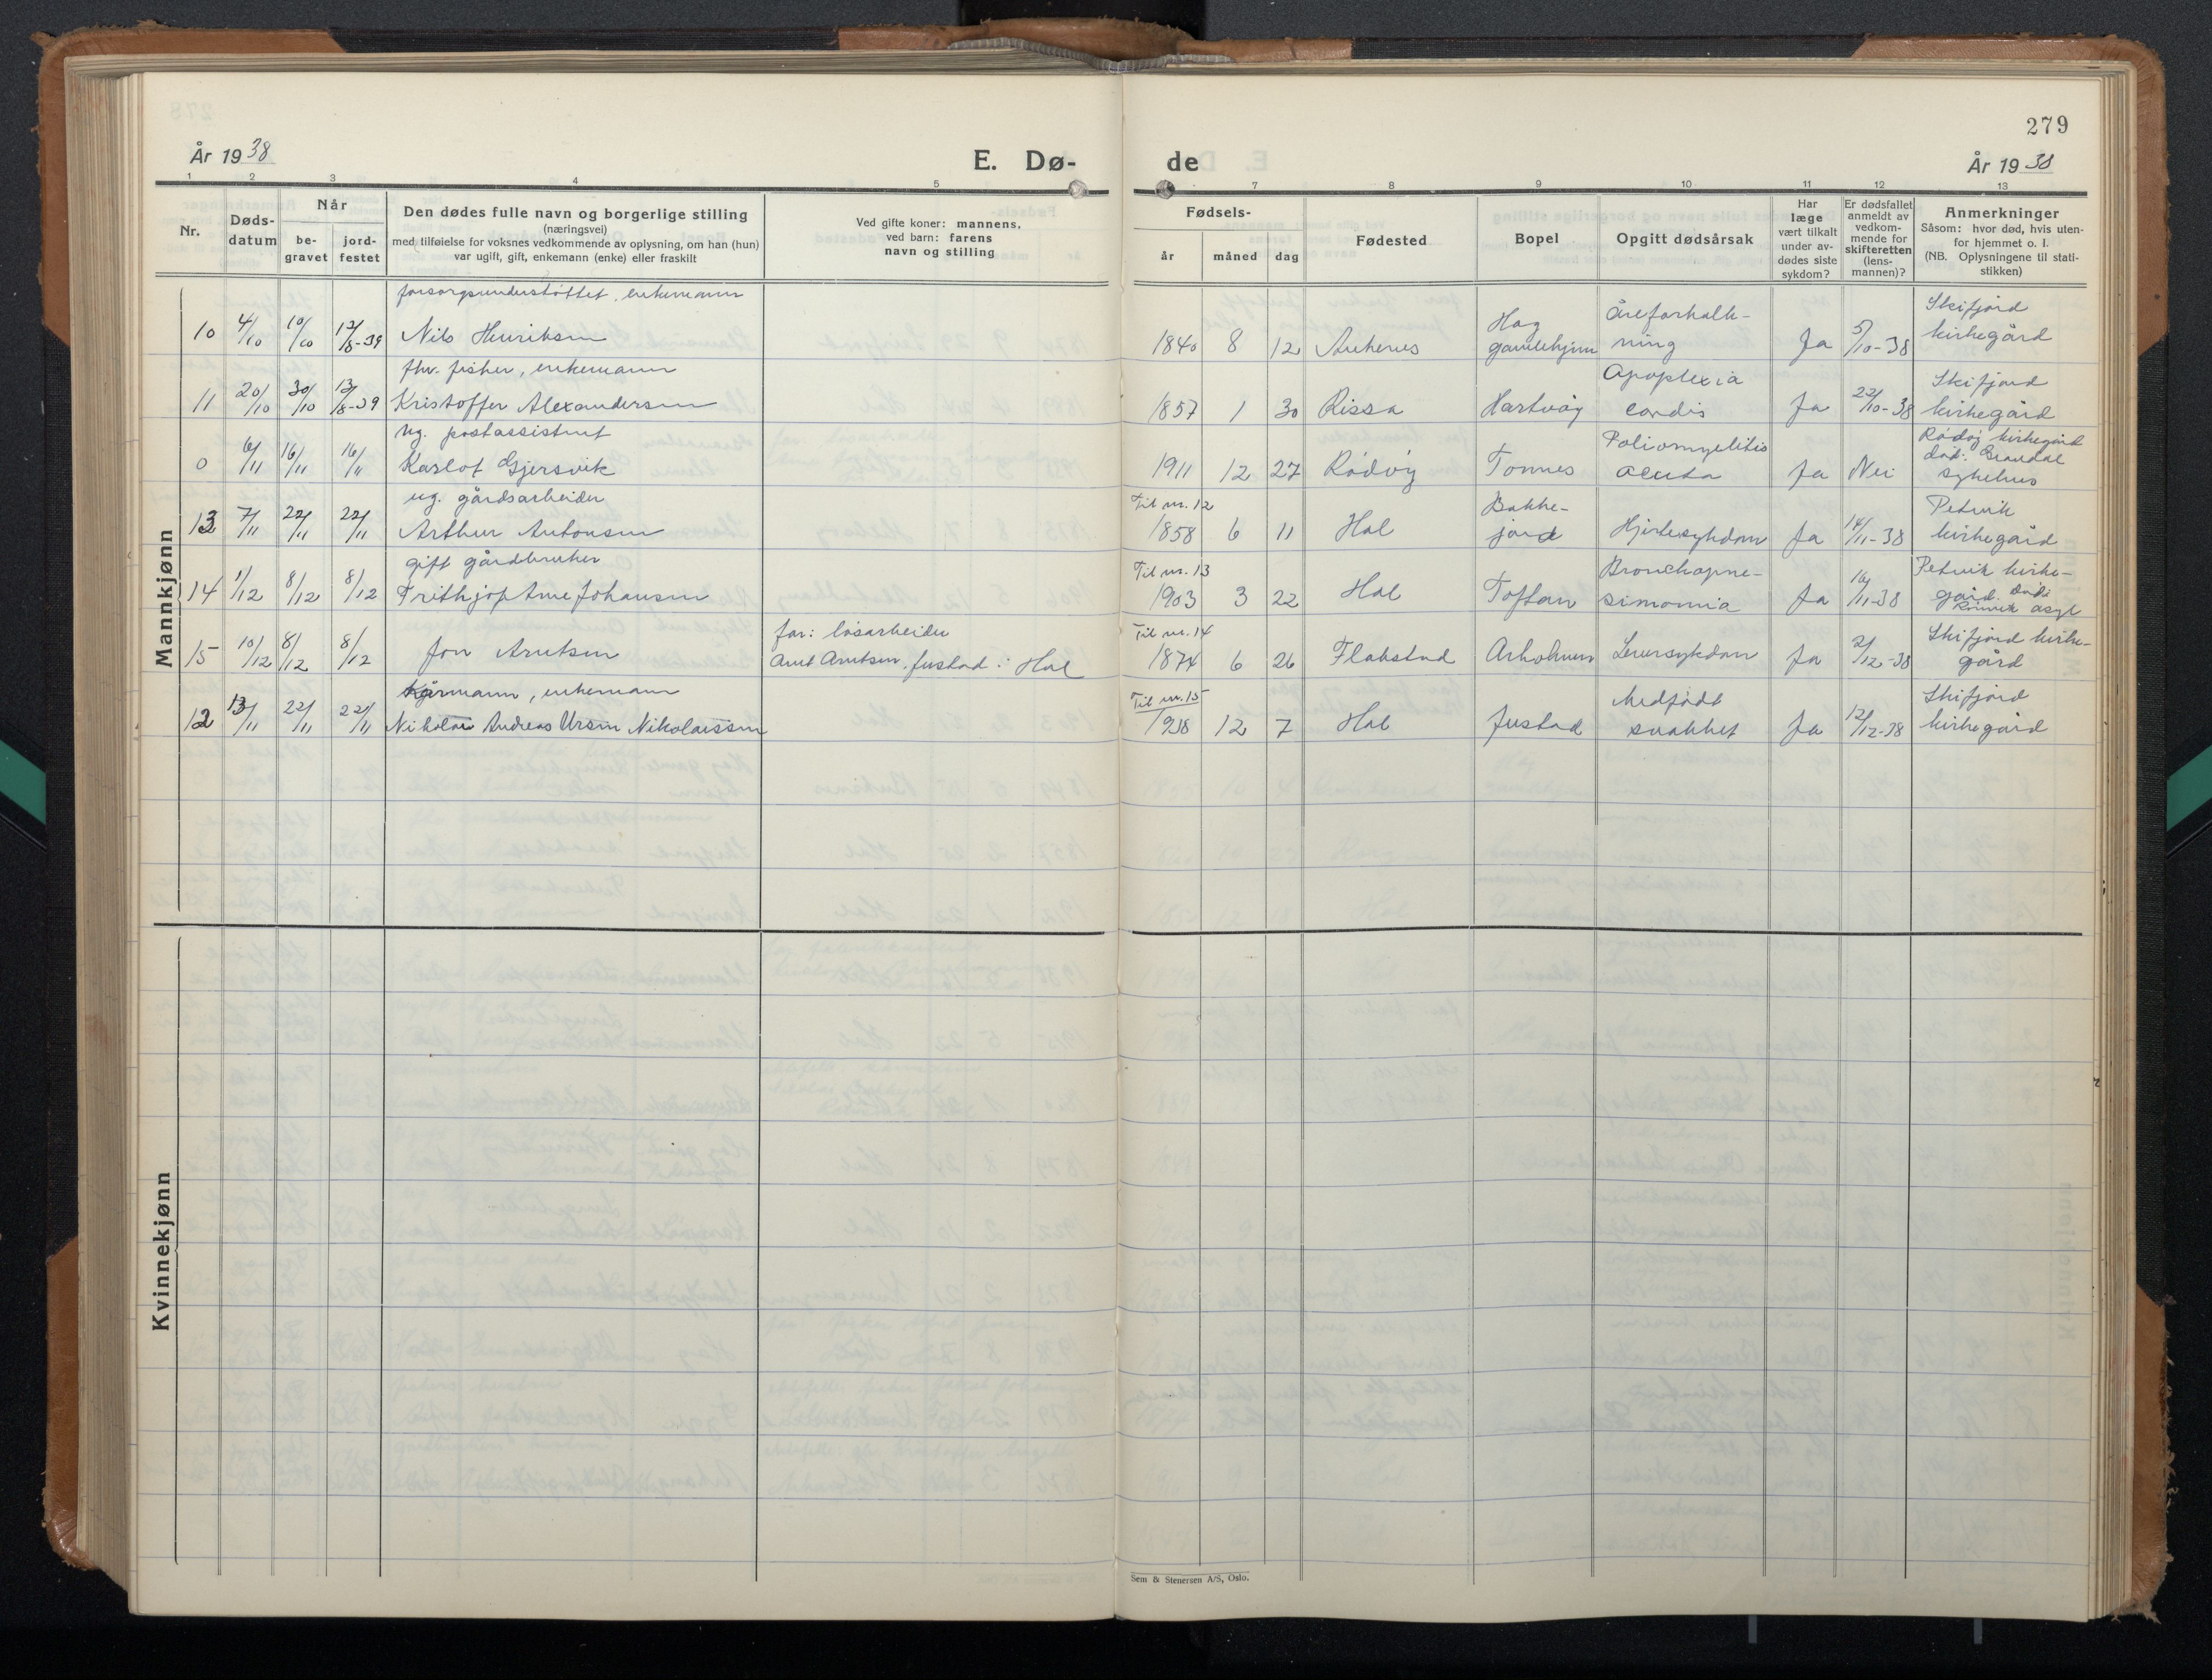 279
År 1938
E. Dø-
de
År 1938
1 2 3 4 5 7 8 9 10 11 12 13
Nr.
Døds-
datum
Når
be-
gravet
jord-
festet
Den dødes fulle navn og borgerlige stilling
(næringsvei)
med tilføielse for voksnes vedkommende av oplysning, om han (hun)
var ugift, gift, enkemann (enke) eller fraskilt
Ved gifte koner: mannens,
ved barn: farens
navn og stilling
Fødsels-
år måned dag
Fødested
Bopel
Opgitt dødsårsak
Har
læge
vært tilkalt
under av-
dødes siste
sykdom?
Er dødsfallet
anmeldt av
vedkom-
mende for
skifteretten
(lens-
mannen)?
Anmerkninger
Såsom: hvor død, hvis uten-
for hjemmet o. l.
(NB. Oplysningene til stati-
stikken)
Mannkjønn
forsorgsunderstøttet, enkemann
10 4/10 10/10 12/8-39 Nils Henriksen
1840 8 12
Hag
gamlehjem
Åreforkalk-
ning
Ja 5/10-38
Skifjord
kirkegård
fhv. fisker, enkemann
11 20/10 30/10 13/8-39 Kristoffer Alexandersen
1857 1 30 Rissa Hartvåg
Apoplexia
cordis
Ja 22/10-38
Skifjord
kirkegård
ug. postassistent
0 6/11 16/11 16/11 Karlot Gjersvik
1911 12 27 Rødøy Tonnes
Poliomyelitis
acuta
Ja Nei
Rødøy kirkegård
død:
sykehus
ug. gårdsarbeider
13 7/11 22/11 22/11 Arthur Antonsen
Til nr. 12
1858 6 11 Hal
Bakke-
jord
Hjertesykdom Ja 14/11-38
Petvik
kirkegård
gift gårdbruker
14 1/12 8/12 8/12 Frithjof Arne Johansen
Til nr. 13
1903 3 22 Hal Toften
Bronchopne-
simonnia
Ja 16/11-38
Petvik kirke-
gård. Død:
Rønvik asyl
15 10/12 8/12 8/12 Jon Arntsen
far: løsarbeider
Arnt Arntsen, Justad i Hal
Til nr. 14
1874 6 26 Flakstad Arholmen Leversykdom Ja 2/12-38
Skifjord kirke-
gård
Kårmann, enkemann
12 13/11 22/11 22/11 Nikolai Andreas Ursin Nikolaissen
Til nr. 15
1938 12 7 Hal Justad
Medfødt
svakhet
Ja 12/12-38
Skifjord
kirkegård
Kvinnekjønn
Sem & Stenersen A/S, Oslo.